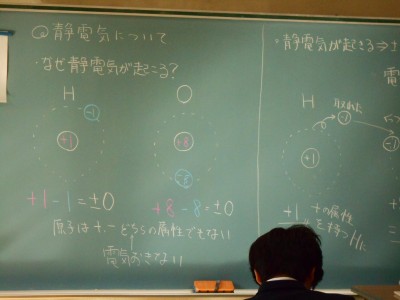 静電気について
・なぜ静電気が起こる?
H
-1
+1
+1-1=±0
O
+8
-8
+8-8=±0
は+,-どちらの属性でもない
電気おきてない
・静電気が起きる⇒
H
取れた
-1
+1
+1
+の属性
を持つHに